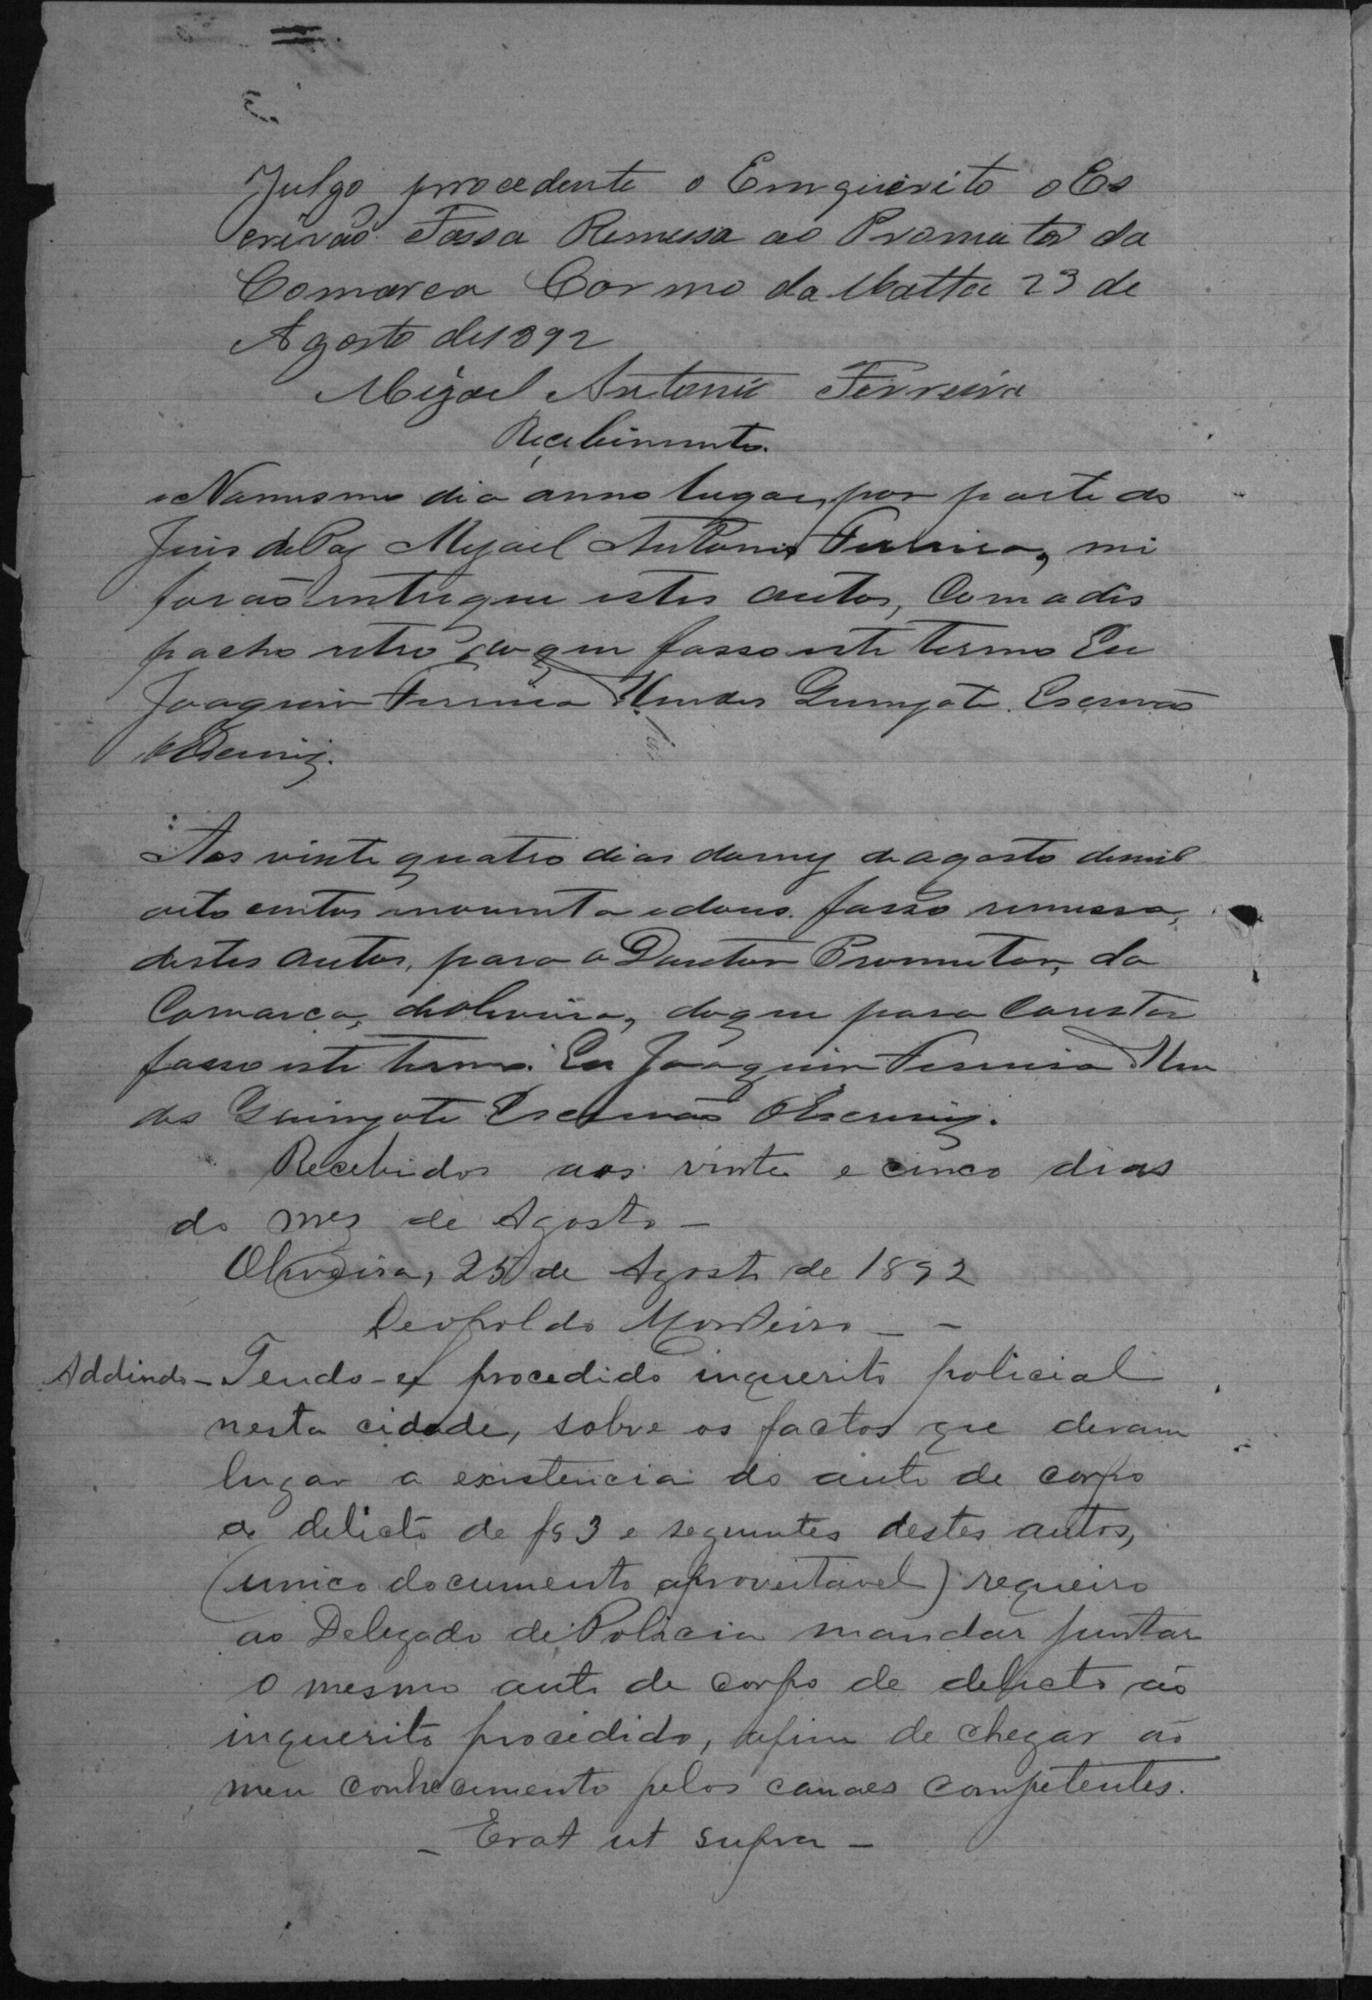 Julgo procedente o Emquerito o Es
crivão Fassa Remessa ao Promutor da
Comarca Carmo da Matta 23 de
Agosto de 1892
Migael Antonio Ferreira
Recebimento.
No mesmo dia anno lugar, por parte do
Juis de Paz Migael Antonio Ferreira, mi
forão entregue estes autos, Com a dis
pacho retro, do que fasso este termo Eu
Joaquim Ferreira Mendes Escrivão
o Escrivi.
Aos vinte quatro dias do mez de agosto de mil
oito centos e noventa e dous. fasso remessa,
destes autos, para o Doutor Promutor, da
Comarca, de Oliveira, do que para Constar
fasso este termo. Eu Joaquim Ferreira Men
des Escrivão o Escrivi.
Recebidos aos vinte e cinco dias
do mez de Agosto —
Oliveira, 25 de Agosto de 1892
Leopoldo Monteiro — —
Addindo — Tendo-se procedido inquerito policial
nesta cidade, sobre os factos que deram
lugar a existencia do auto de corpo
de delicto de fs 3 e seguintes destes autos,
(unico documento aproveitavel) requeiro
ao Delegado de Policia mandar juntar
o mesmo auto de corpo de delicto ao
inquerito procedido, afim de chegar ao
meu conhecimento pelos canaes competentes.
— Erat ut supra —